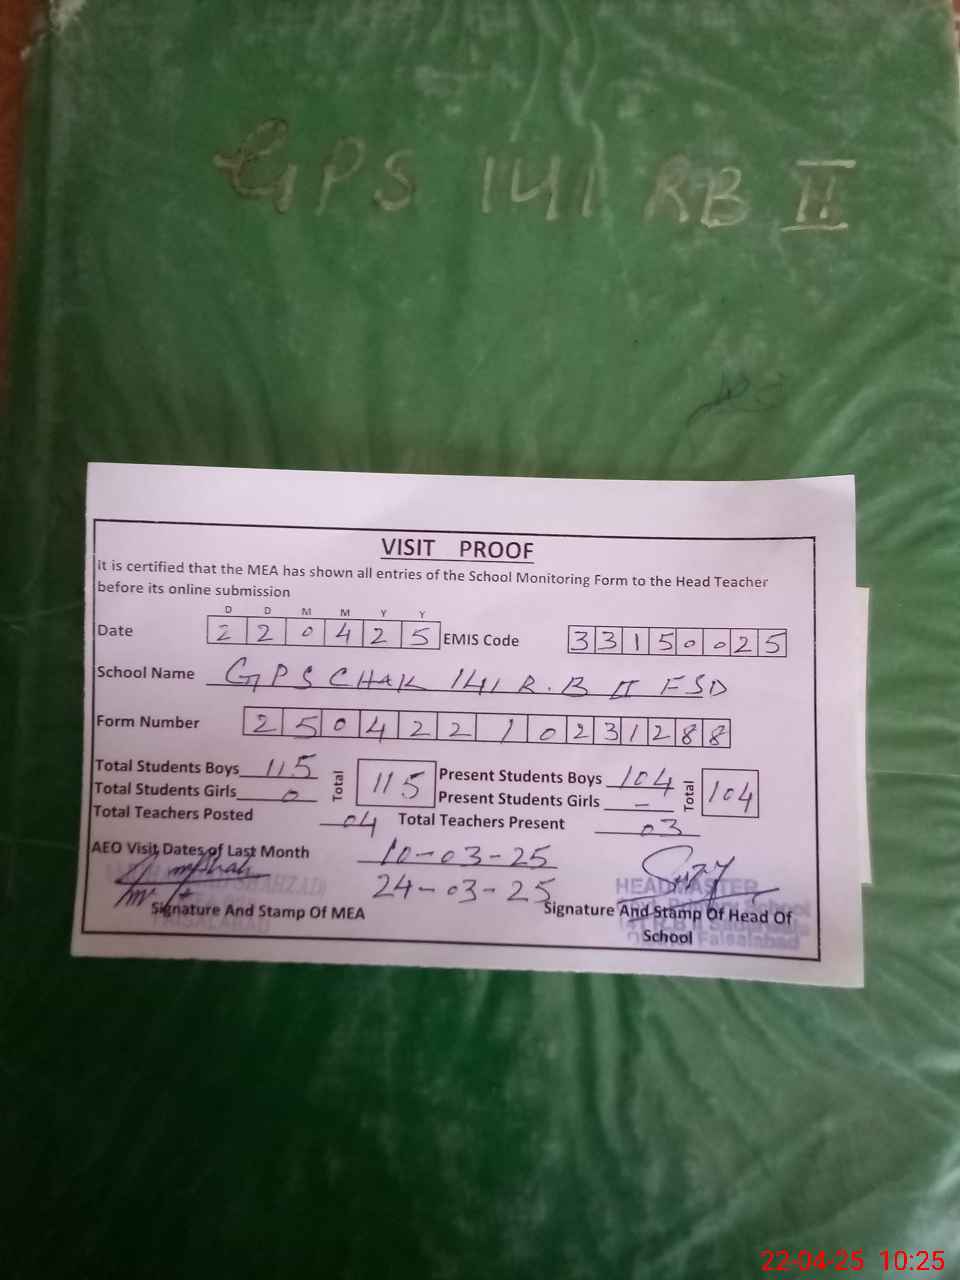 GPS 141 RB II
VISIT PROOF
It is certified that the MEA has shown all entries of the School Monitoring Form to the Head Teacher
before its online submission
D D M M Y Y
Date 2 2 0 4 2 5 EMIS Code 3 3 1 5 0 0 2 5
School Name GPS CHAK 141 R.B II FSD
Form Number 2 5 0 4 2 2 1 0 2 3 1 2 8 8
Total Students Boys 115 Total 115 Present Students Boys 104 Total 104
Total Students Girls 0 Present Students Girls –
Total Teachers Posted 04 Total Teachers Present 03
AEO Visit Dates of Last Month 10-03-25
24-03-25
SHAHZAD
HEADMASTER
Signature And Stamp Of MEA Signature And Stamp Of Head Of
School
Primary School
FAISALABAD
Faisalabad
22-04-25 10:25